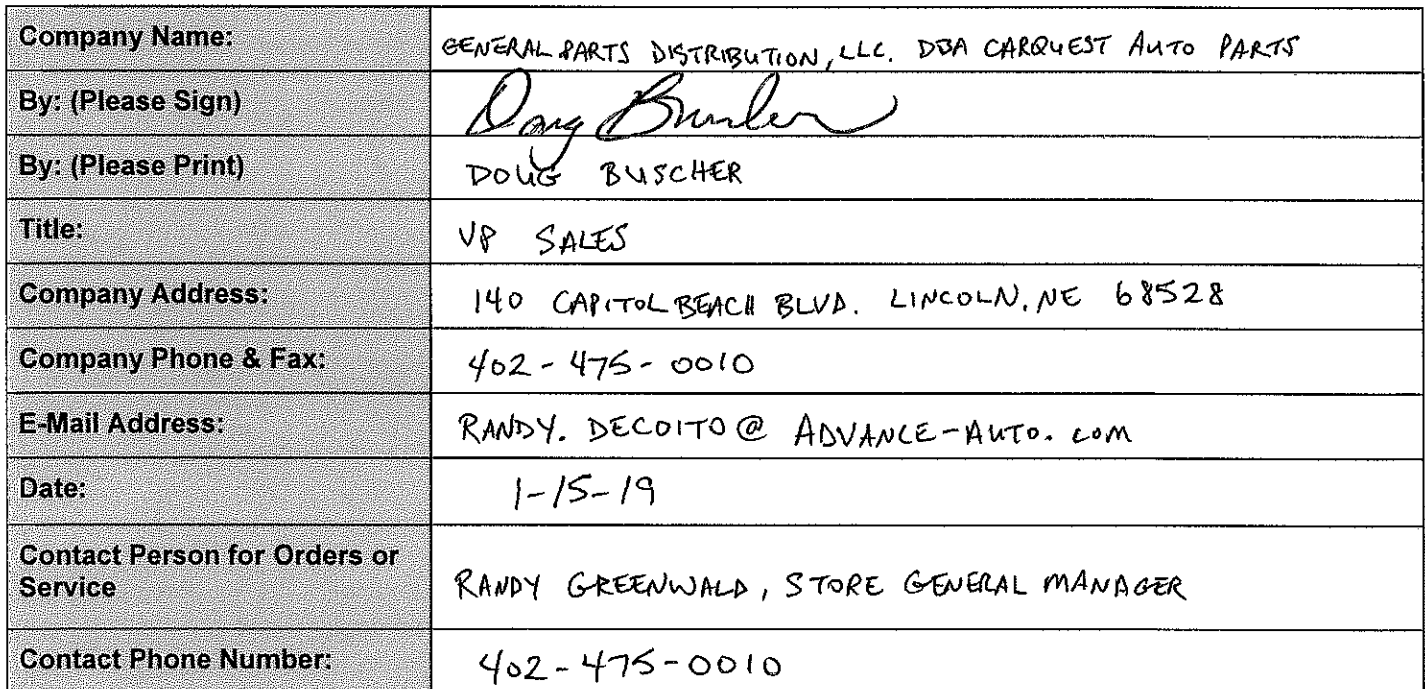 Company Name: GENERAL PARTS DISTRIBUTION, LLC. DBA CARQUEST AUTO PARTS
By: (Please Sign) Doug Buscher
By: (Please Print) DOUG BUSCHER
Title: VP SALES
Company Address: 140 CAPITOL BEACH BLVD. LINCOLN, NE 68528
Company Phone & Fax: 402-475-0010
E-Mail Address: RANDY.DECOITO@ADVANCE-AUTO.COM
Date: 1-15-19
Contact Person for Orders or
Service RANDY GREENWALD, STORE GENERAL MANAGER
Contact Phone Number: 402-475-0010